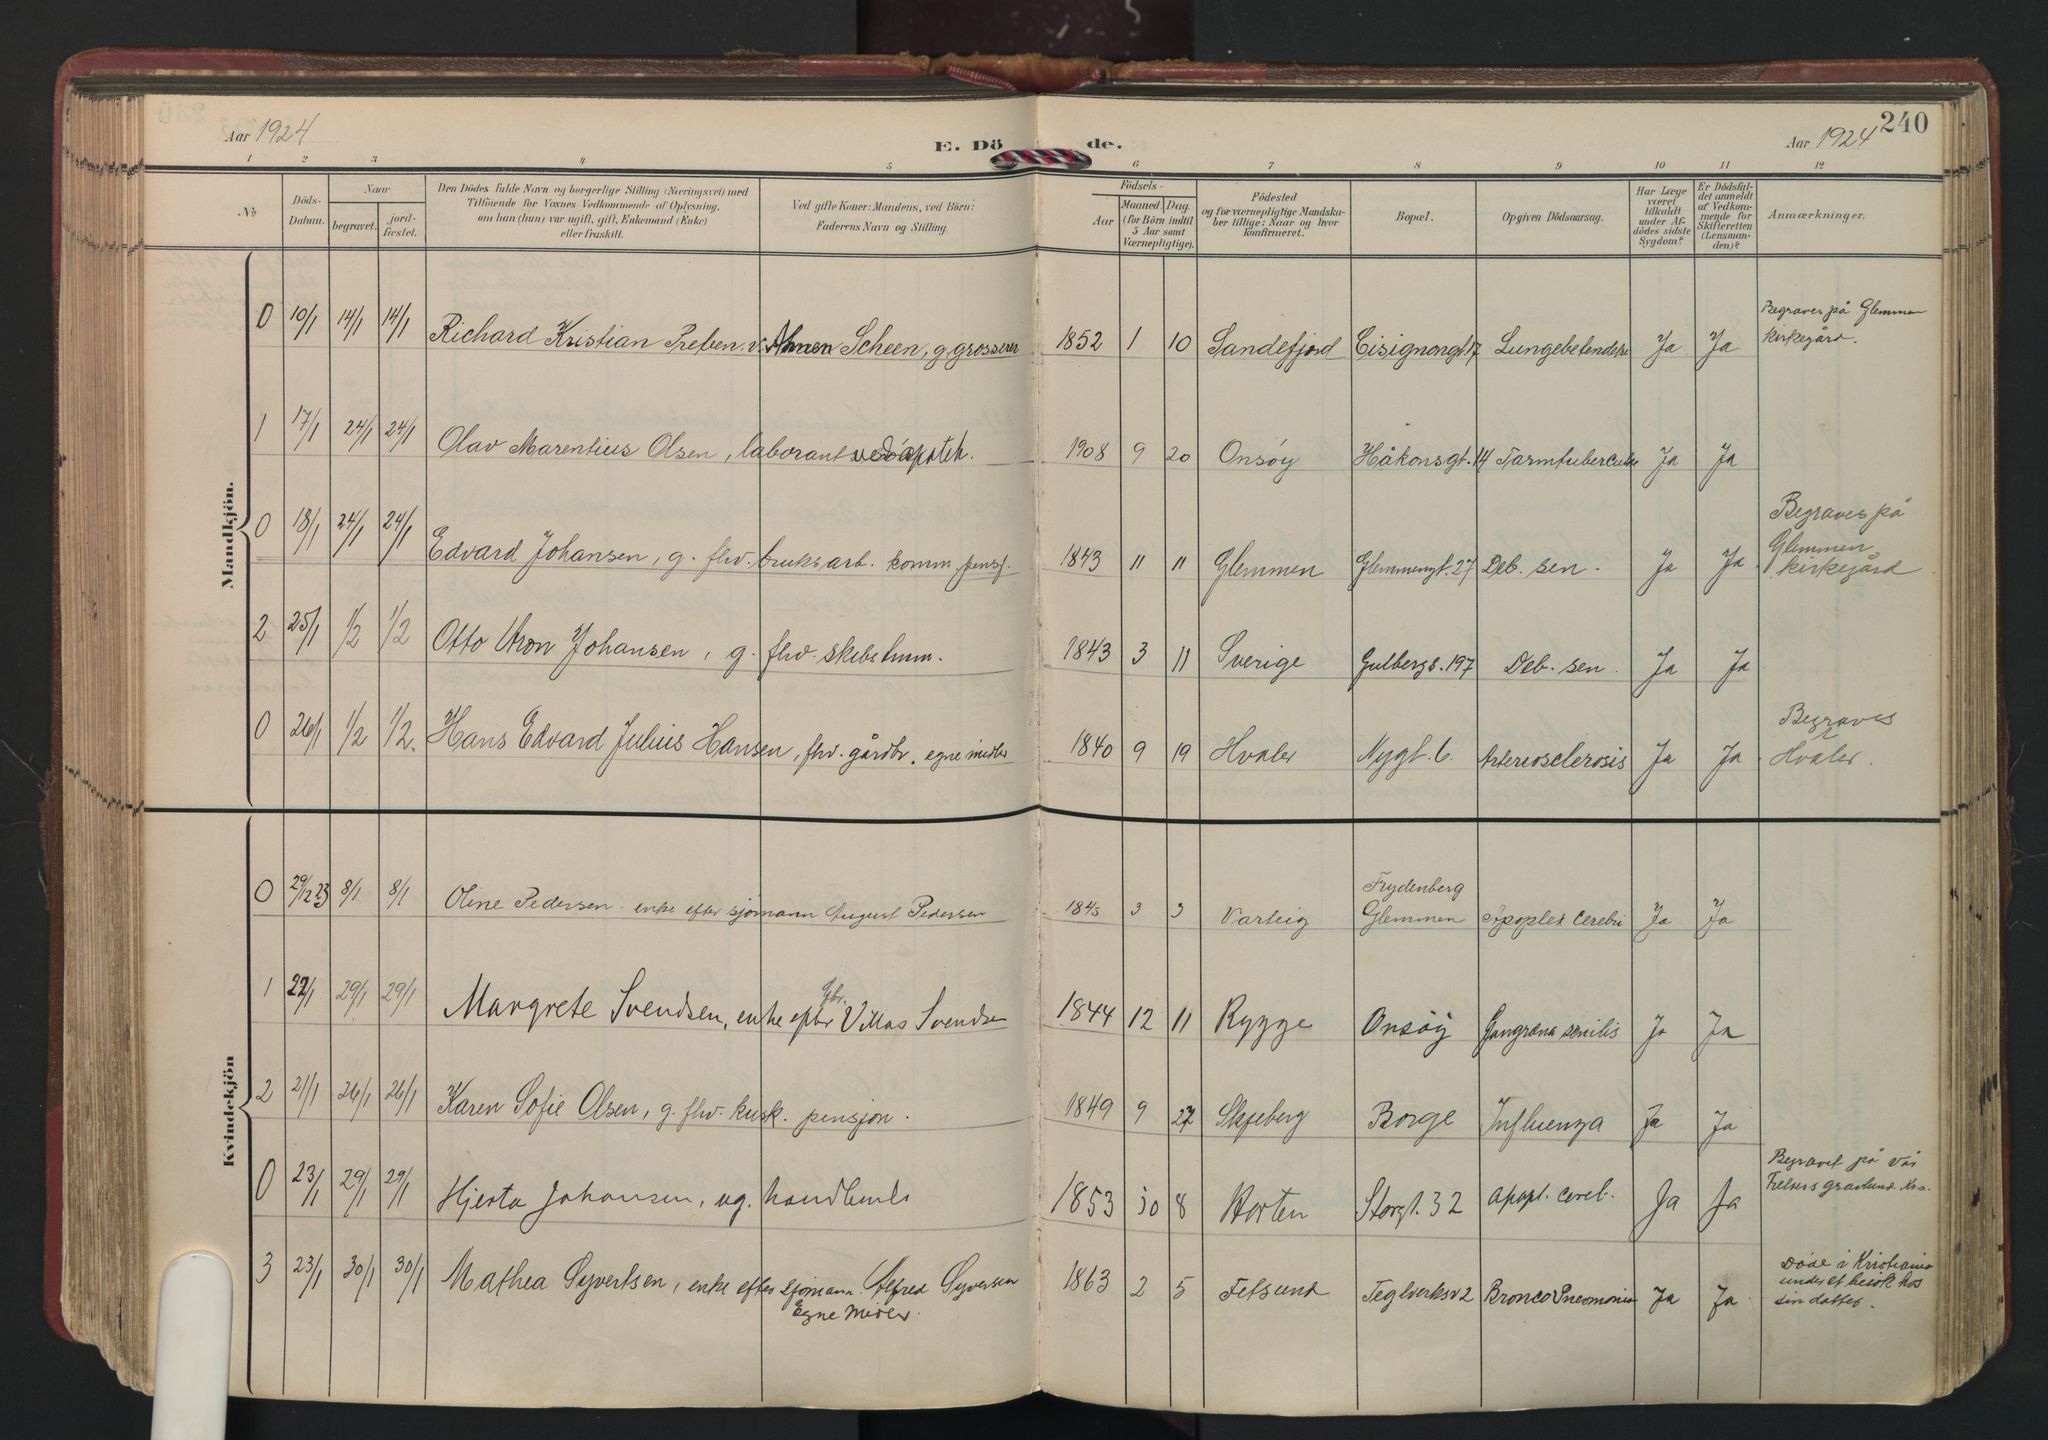 Aar 1924
E. Dö de.
Aar 1924
240
1 2 3 4 5 6 7 8 9 10 11 12
No
Döds-Datum.
Naar
begravet.
jordfæstet.
Den Dödes fulde Navn og borgerlige Stilling (Næringsvei) med
Tilföiende for Voxnes Vedkommende af Oplysning.
om han (hun) var ugift, gift, Enkemand (Enke)
eller fraskilt.
Ved gifte Koner: Mandens, ved Börn:
Faderens Navn og Stilling.
Födsels-
Aar
Maaned
(for Börn indtil
5 Aar samt
Værnepligtige).
Dag.
Födested
og for værnepligtige Mandska-
ber tillige: Naar og hvor
konfirmeret.
Bopæl.
Opgiven Dödsaarsag.
Har Læge
været
tilkaldt
under Af-
dödes sidste
Sygdom?
Er Dödsfal-
det anmeldt
af Vedkom-
mende for
Skifteretten
(Lensman-
den)?
Anmærkninger.
Mandkjön.
0 10/1 14/1 14/1 Richard Kristian Preben v. Ahnen Scheen, g. grosserer 1852 1 10 Sandefjord Cicignongt. 17 Lungebetendelse Ja Ja Begraves på Glemmen
kirkegård.
1 17/1 24/1 24/1 Olav Marentius Olsen, laborant ved apotek. 1908 9 20 Onsøy Håkonsgt. 14 Tarmtuberculose Ja Ja
0 18/1 24/1 24/1 Edvard Johansen, g. fhv. bruksarb. komm. pensj. 1843 11 11 Glemmen Glemmengt. 27 Deb. sen. Ja Ja Begraves på
Glemmen
kirkegård
2 25/1 1/2 1/2 Otto Aron Johansen, g. fhv. skibstmm. 1843 3 11 Sverige Gulbergs. 197 Deb. sen. Ja Ja
0 26/1 1/2 1/2. Hans Edvard Julius Hansen, fhv. gårdbr. egne midler 1840 9 19 Hvaler Nygt. 6. Arteriosclerosis Ja Ja Begraves
Hvaler.
Kvindekjön
0 29/12 23 8/1 8/1 Oline Pedersen. enke efter sjømann August Pedersen 1845 3 3 Varteig Frydenberg
Glemmen Apoplex cerebri Ja Ja
1 22/1 29/1 29/1 Margrete Svendsen, enke efter Gbr. Villas Svendsen 1844 12 11 Rygge Onsøy Gangræna senilis Ja Ja
2 21/1 26/1 26/1 Karen Sofie Olsen, g. fhv. kusk. pensjon. 1849 9 27 Skjeberg Borge Influenza Ja Ja
0 23/1 29/1 29/1 Hjerta Johansen, ug. 1853 10 8 Horten Storgt. 32 apopl. cereb. Ja Ja Begravet på Vår
Frelsers gravlund. Kra.
3 23/1 30/1 30/1 Mathea Syvertsen, enke efter sjømann. Alfred Syversen
Egne Midler. 1863 2 5 Fetsund Teglverksv 2 Bronco Pneomonia Ja Ja Døde i Kristiania
under et besøk hos
sin datter.